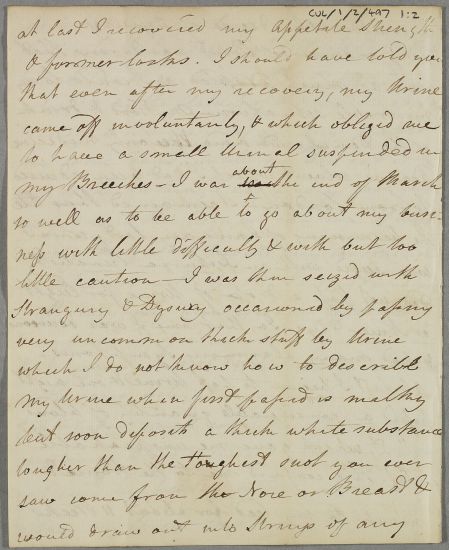 CUL/1/2/497 1:2
at last I recovered my appetite Strength
& former looks. I should have told you
that even after my recovery, my Urine
came off involuntarily, & which obliged me
to have a small Urinal suspended in
my Breeches – I was about the end of March
so well as to be able to go about my busi-
ness with little difficulty & with but too
little caution – I was then seized with
Strangury & Dysury occasioned by passing
very uncommon thick stuff by Urine
which I do not know how to describe
my Urine when first passed is milky
but soon deposits a thick white substance
tougher than the toughest snot you ever
saw come from the Nose or Breast &
would draw out into Strings of any